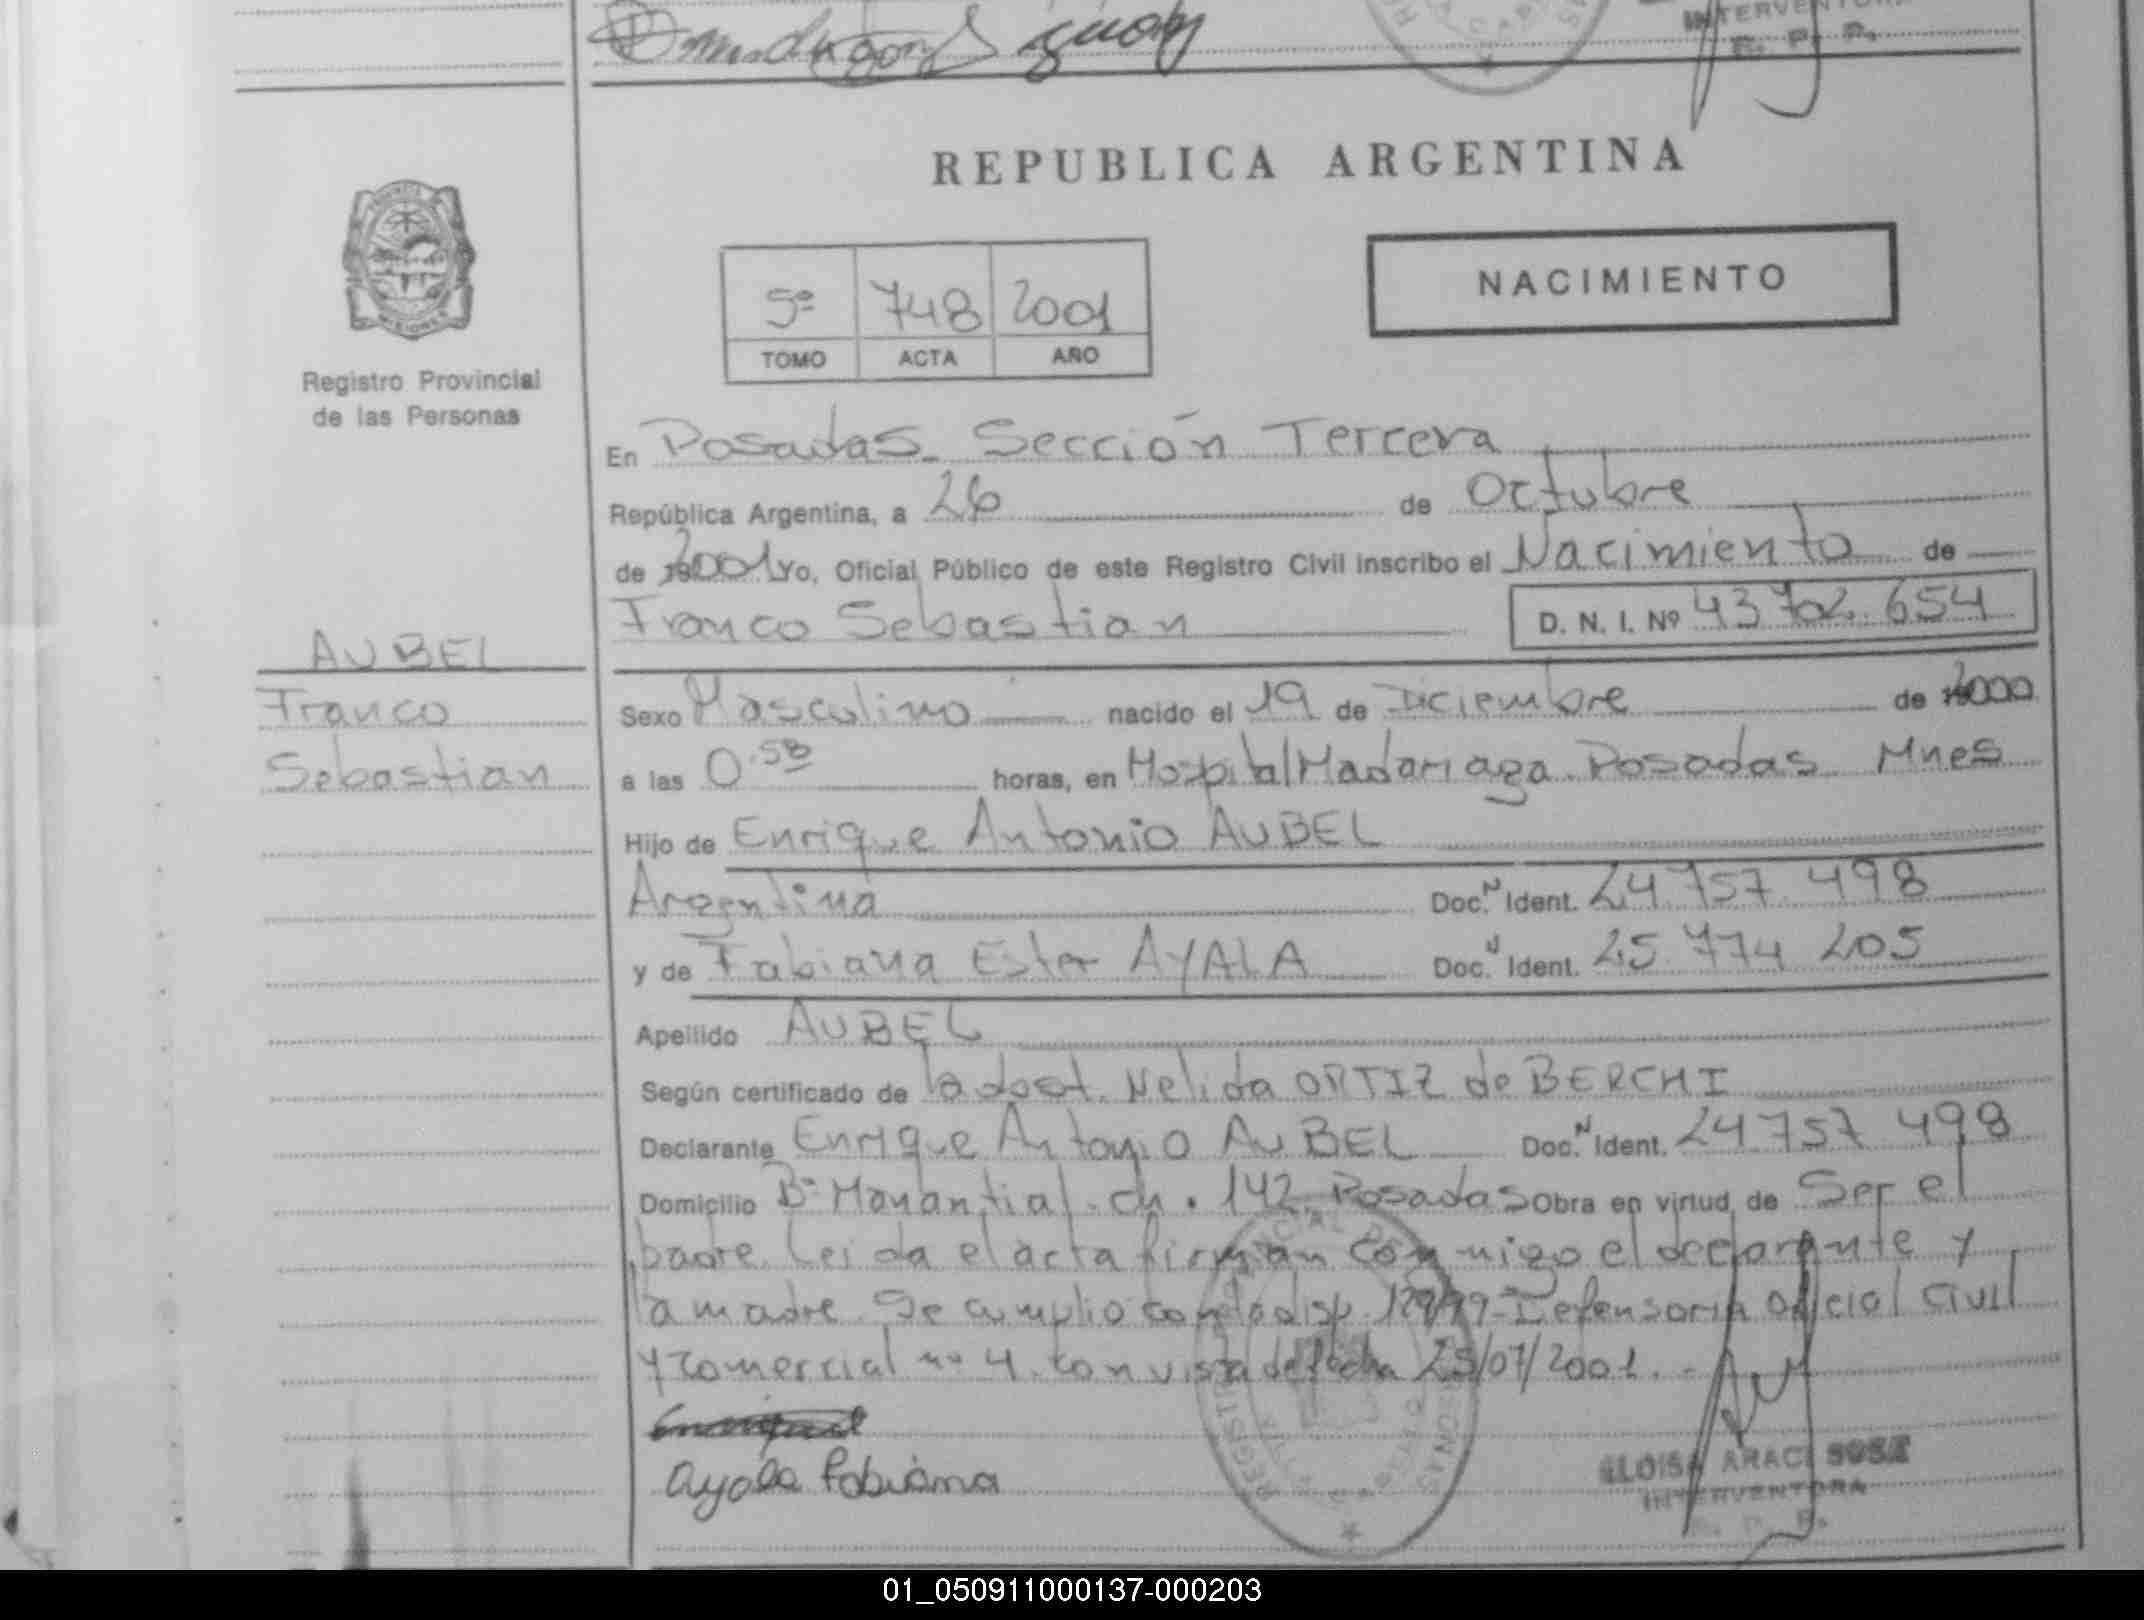 INTERVENTORA
R. P. P.
REPUBLICA ARGENTINA
NACIMIENTO
5º 748 2001
TOMO ACTA AÑO
Registro Provincial
de las Personas
En Posadas. Sección Tercera
República Argentina, a 26 de Octubre
de 2001 Yo, Oficial Público de este Registro Civil inscribo el Nacimiento de
Franco Sebastian D. N. I. Nº 43702.654
AUBEL
Franco
Sebastian
Sexo Masculino nacido el 19 de Diciembre de 2000
a las 0.58 horas, en Hospital Madariaga. Posadas Mnes
Hijo de Enrique Antonio AUBEL
Argentina Doc. N Ident. 24.757.498
y de Fabiana Ester AYALA Doc. N Ident. 25.774 205
Apellido AUBEL
Según certificado de la dost. Nelida ORTIZ de BERCHI
Declarante Enrique Antonio AUBEL Doc. N Ident. 24757 498
Domicilio Bº Manantial. ch. 142. Posadas Obra en virtud de Ser el
padre. Leida el acta firman conmigo el declarante y
la madre. Se cumplio con la disp. 129/99-Defensoria Oficial Civil
y Comercial nº 4. con vista de fecha 25/07/2001.-
Ayala Fabiana
ELOISA ARACI SOSA
INTERVENTORA
R. P. P.
01_050911000137-000203